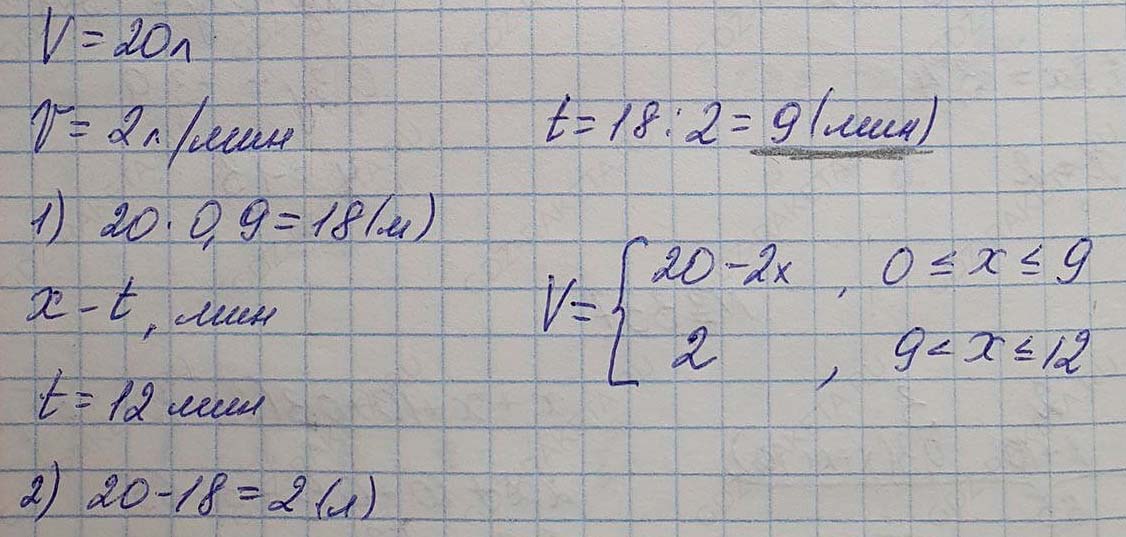 V = 20л
V = 2л/мин
1) 20 · 0,9 = 18 (л)
x - t, мин
t = 12 мин
2) 20 - 18 = 2 (л)
t = 18 : 2 = 9 (мин)
V = { 20 - 2x , 0 ≤ x ≤ 9
2 , 9 < x ≤ 12